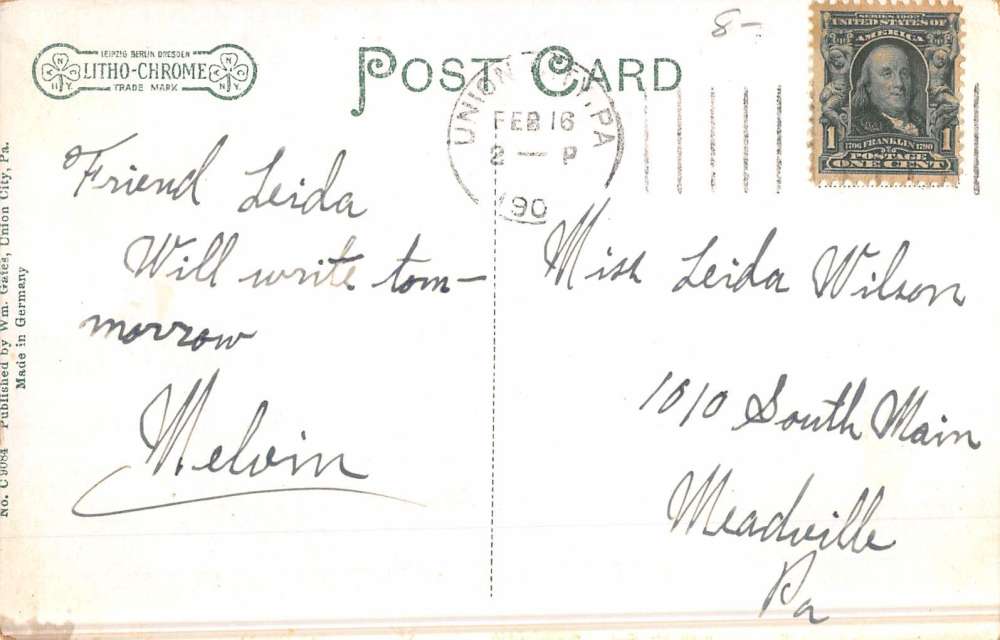 LEIPZIG BERLIN DRESDEN
LITHO-CHROME
TRADE MARK
POST CARD
8-
UNION CITY, PA.
FEB 16
2 — P
190
SERIES 1902
UNITED STATES OF
AMERICA
1 1706 FRANKLIN 1790 1
POSTAGE
ONE CENT
Friend Leida
Will write tom-
morrow
Melvin
Miss Leida Wilson
1010 South Main
Meadville
Pa
No. C 9084 Published by Wm. Gates, Union City, Pa.
Made in Germany